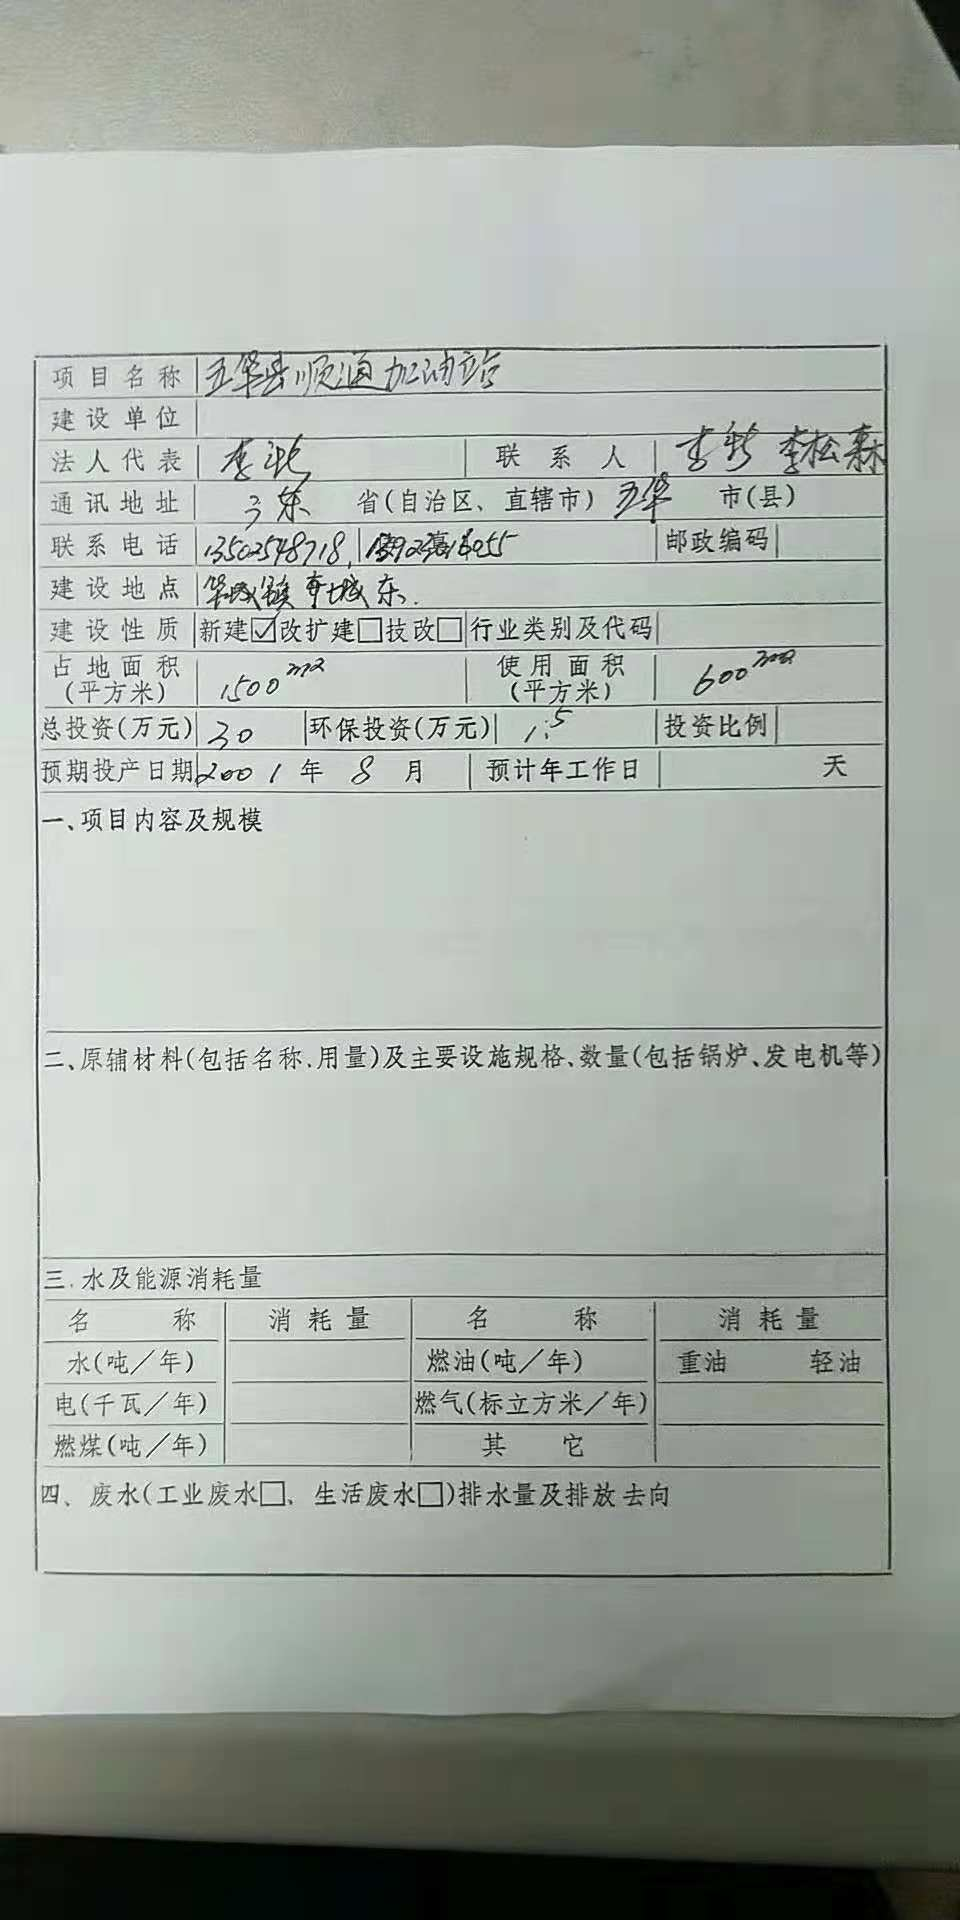 项目名称 五华县顺通加油站
建设单位
法人代表 李 联系人 李 李松森
通讯地址 广东 省(自治区、直辖市) 五华 市(县)
联系电话 13502548718 邮政编码
建设地点 华城镇 城东.
建设性质 新建☑改扩建□技改□ 行业类别及代码
占地面积(平方米) 1500m2 使用面积(平方米) 600m2
总投资(万元) 30 环保投资(万元) 1.5 投资比例
预期投产日期 2001年8月 预计年工作日 天
一、项目内容及规模
二、原辅材料(包括名称.用量)及主要设施规格、数量(包括锅炉、发电机等)
三.水及能源消耗量
名称 消耗量 名称 消耗量
水(吨/年) 燃油(吨/年) 重油 轻油
电(千瓦/年) 燃气(标立方米/年)
燃煤(吨/年) 其它
四、废水(工业废水□、生活废水□)排水量及排放去向